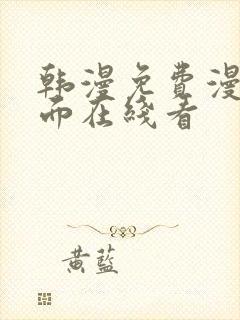 韩漫免费漫
而在线看
黄蓝